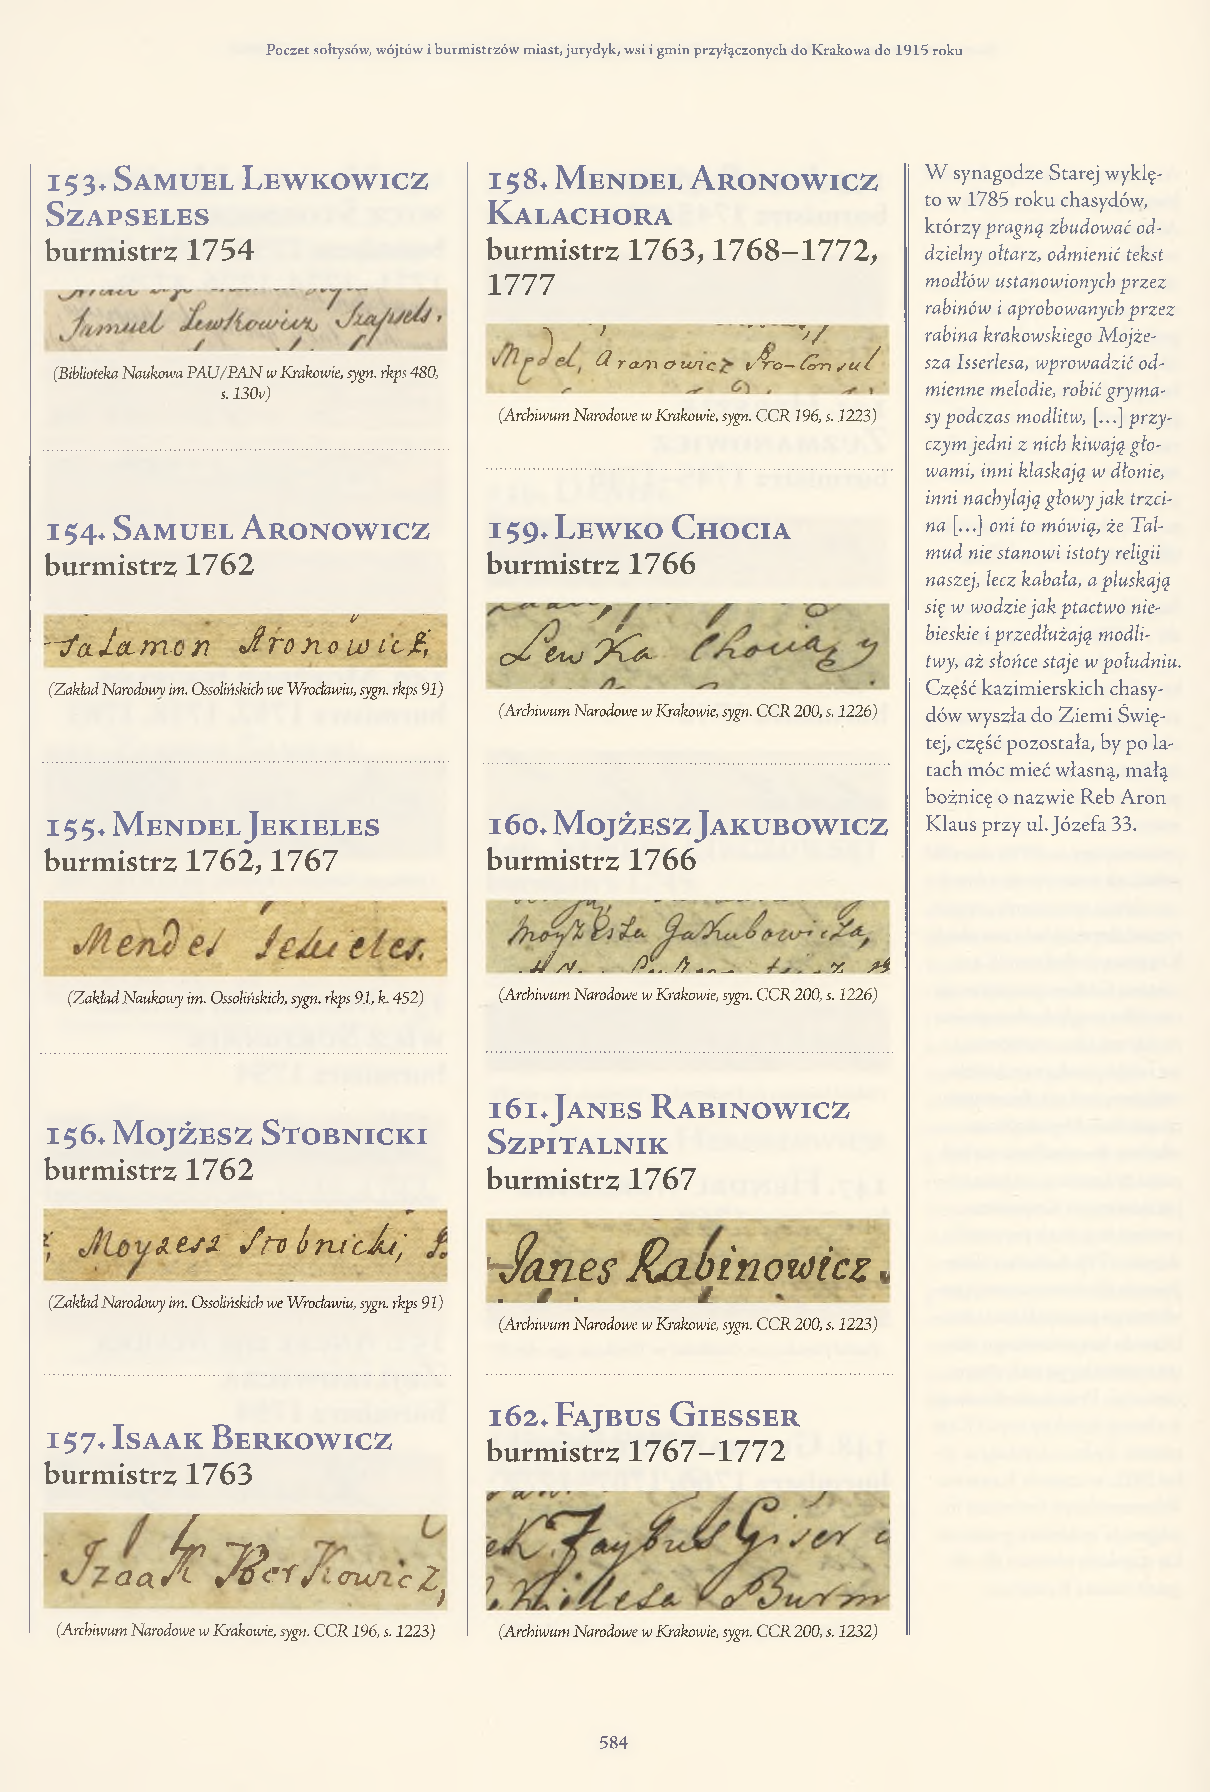 Poczet sołtysów, wójtów i burmistrzów miast, jurydyk, wsi i gmin przyłączonych do Krakowa do 1915 roku
153. Samuel Lewkowicz
Szapseles
burmistrz 1754
Samuel Lewkowicz Szapsels.
(Biblioteka Naukowa PAU/PAN w Krakowie, sygn. rkps 480,
s. 130v)
154. Samuel Aronowicz
burmistrz 1762
Salamon Aronowicz,
(Zakład Narodowy im. Ossolińskich we Wrocławiu, sygn. rkps 91)
155. Mendel Jekieles
burmistrz 1762, 1767
Mendel Jekieles.
(Zakład Naukowy im. Ossolińskich, sygn. rkps 91, k. 452)
156. Mojżesz Stobnicki
burmistrz 1762
Moyzesz Stobnicki,
(Zakład Narodowy im. Ossolińskich we Wrocławiu, sygn. rkps 91)
157. Isaak Berkowicz
burmistrz 1763
Izaak Berkowicz,
(Archiwum Narodowe w Krakowie, sygn. CCR 196, s. 1223)
158. Mendel Aronowicz
Kalachora
burmistrz 1763, 1768–1772,
1777
Mędel, Aronowicz Pro-Consul
(Archiwum Narodowe w Krakowie, sygn. CCR 196, s. 1223)
159. Lewko Chocia
burmistrz 1766
Lewka
(Archiwum Narodowe w Krakowie, sygn. CCR 200, s. 1226)
160. Mojżesz Jakubowicz
burmistrz 1766
Moyżesza Jakubowicza,
(Archiwum Narodowe w Krakowie, sygn. CCR 200, s. 1226)
161. Janes Rabinowicz
Szpitalnik
burmistrz 1767
Janes Rabinowicz
(Archiwum Narodowe w Krakowie, sygn. CCR 200, s. 1223)
162. Fajbus Giesser
burmistrz 1767–1772
Faybus Giser
Burm
(Archiwum Narodowe w Krakowie, sygn. CCR 200, s. 1232)
W synagodze Starej wyklę-
to w 1785 roku chasydów,
którzy pragną zbudować od-
dzielny ołtarz, odmienić tekst
modłów ustanowionych przez
rabinów i aprobowanych przez
rabina krakowskiego Mojże-
sza Isserlesa, wprowadzić od-
mienne melodie, robić gryma-
sy podczas modlitw, [...] przy-
czym jedni z nich kiwają gło-
wami, inni klaskają w dłonie,
inni nachylają głowy jak trzci-
na [...] oni to mówią, że Tal-
mud nie stanowi istoty religii
naszej, lecz kabała, a pluskają
się w wodzie jak ptactwo nie-
bieskie i przedłużają modli-
twy, aż słońce staje w południu.
Część kazimierskich chasy-
dów wyszła do Ziemi Świę-
tej, część pozostała, by po la-
tach móc mieć własną, małą
bożnicę o nazwie Reb Aron
Klaus przy ul. Józefa 33.
584